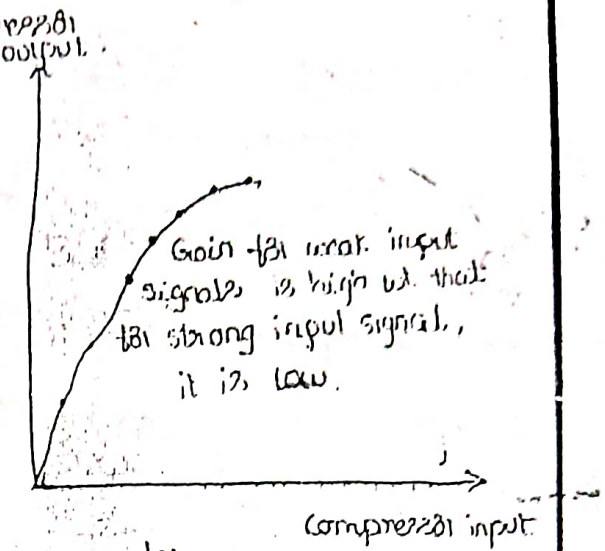 output.
Gain for weak input
signals is high but that
for strong input signal,
it is low.
compressor input